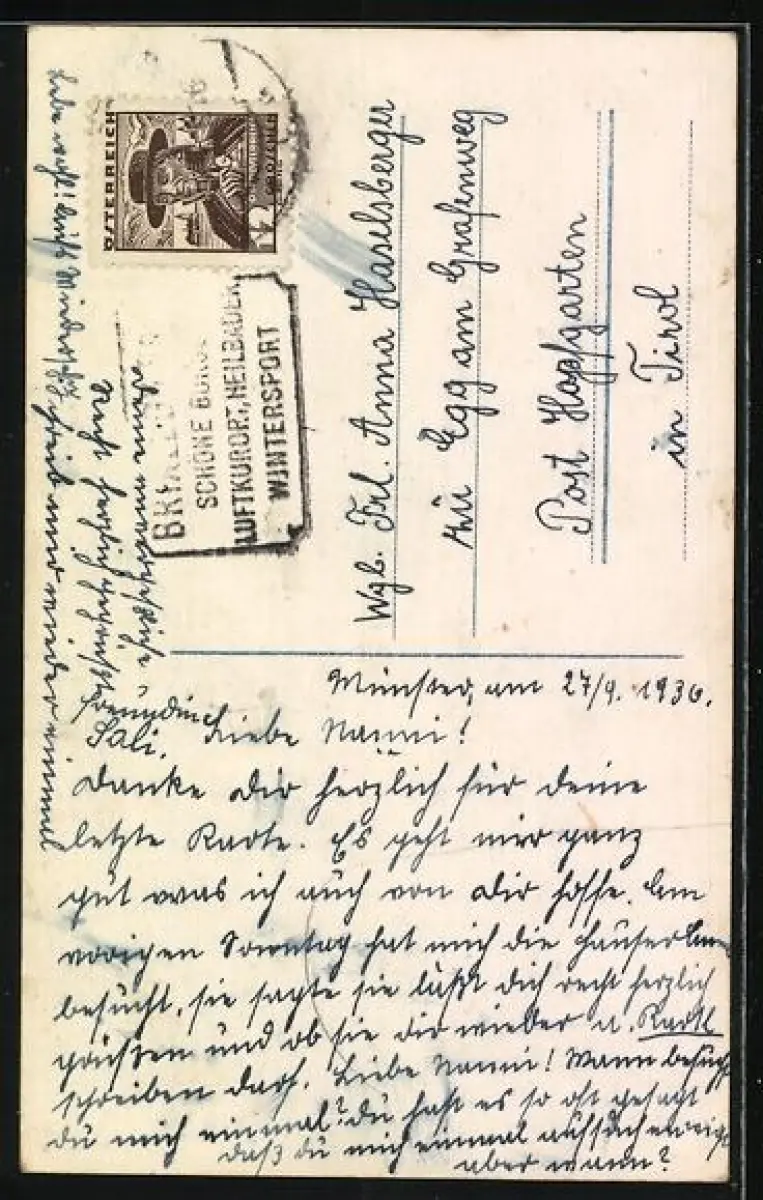 ÖSTERREICH
SCHÖNE
LUFTKURORT, HEILBÄDER
WINTERSPORT
Wgb. Frl. Anna Haselsberger
zu Egg am Grafenweg
Post Hopfgarten
in Tirol
Münster, am 27/9. 1936.
Liebe Nanni!
Danke Dir herzlich für deine
letzte Karte. Es geht mir ganz
gut was ich auch von Dir hoffe. Am
vorigen Sonntag hat mich die Hauser
besucht, sie sagte sie läßt dich recht herzlich
grüßen und ob sie dir wieder a. Kartl
schreiben darf. Liebe Nanni! Wann besuchst
du mich einmal? Du hast es so oft gesagt
daß du mich einmal
aber wann?
Lebe wohl! Auf Wiedersehn
schreib mir wieder einmal
recht herzlich
Freundin
Sali.